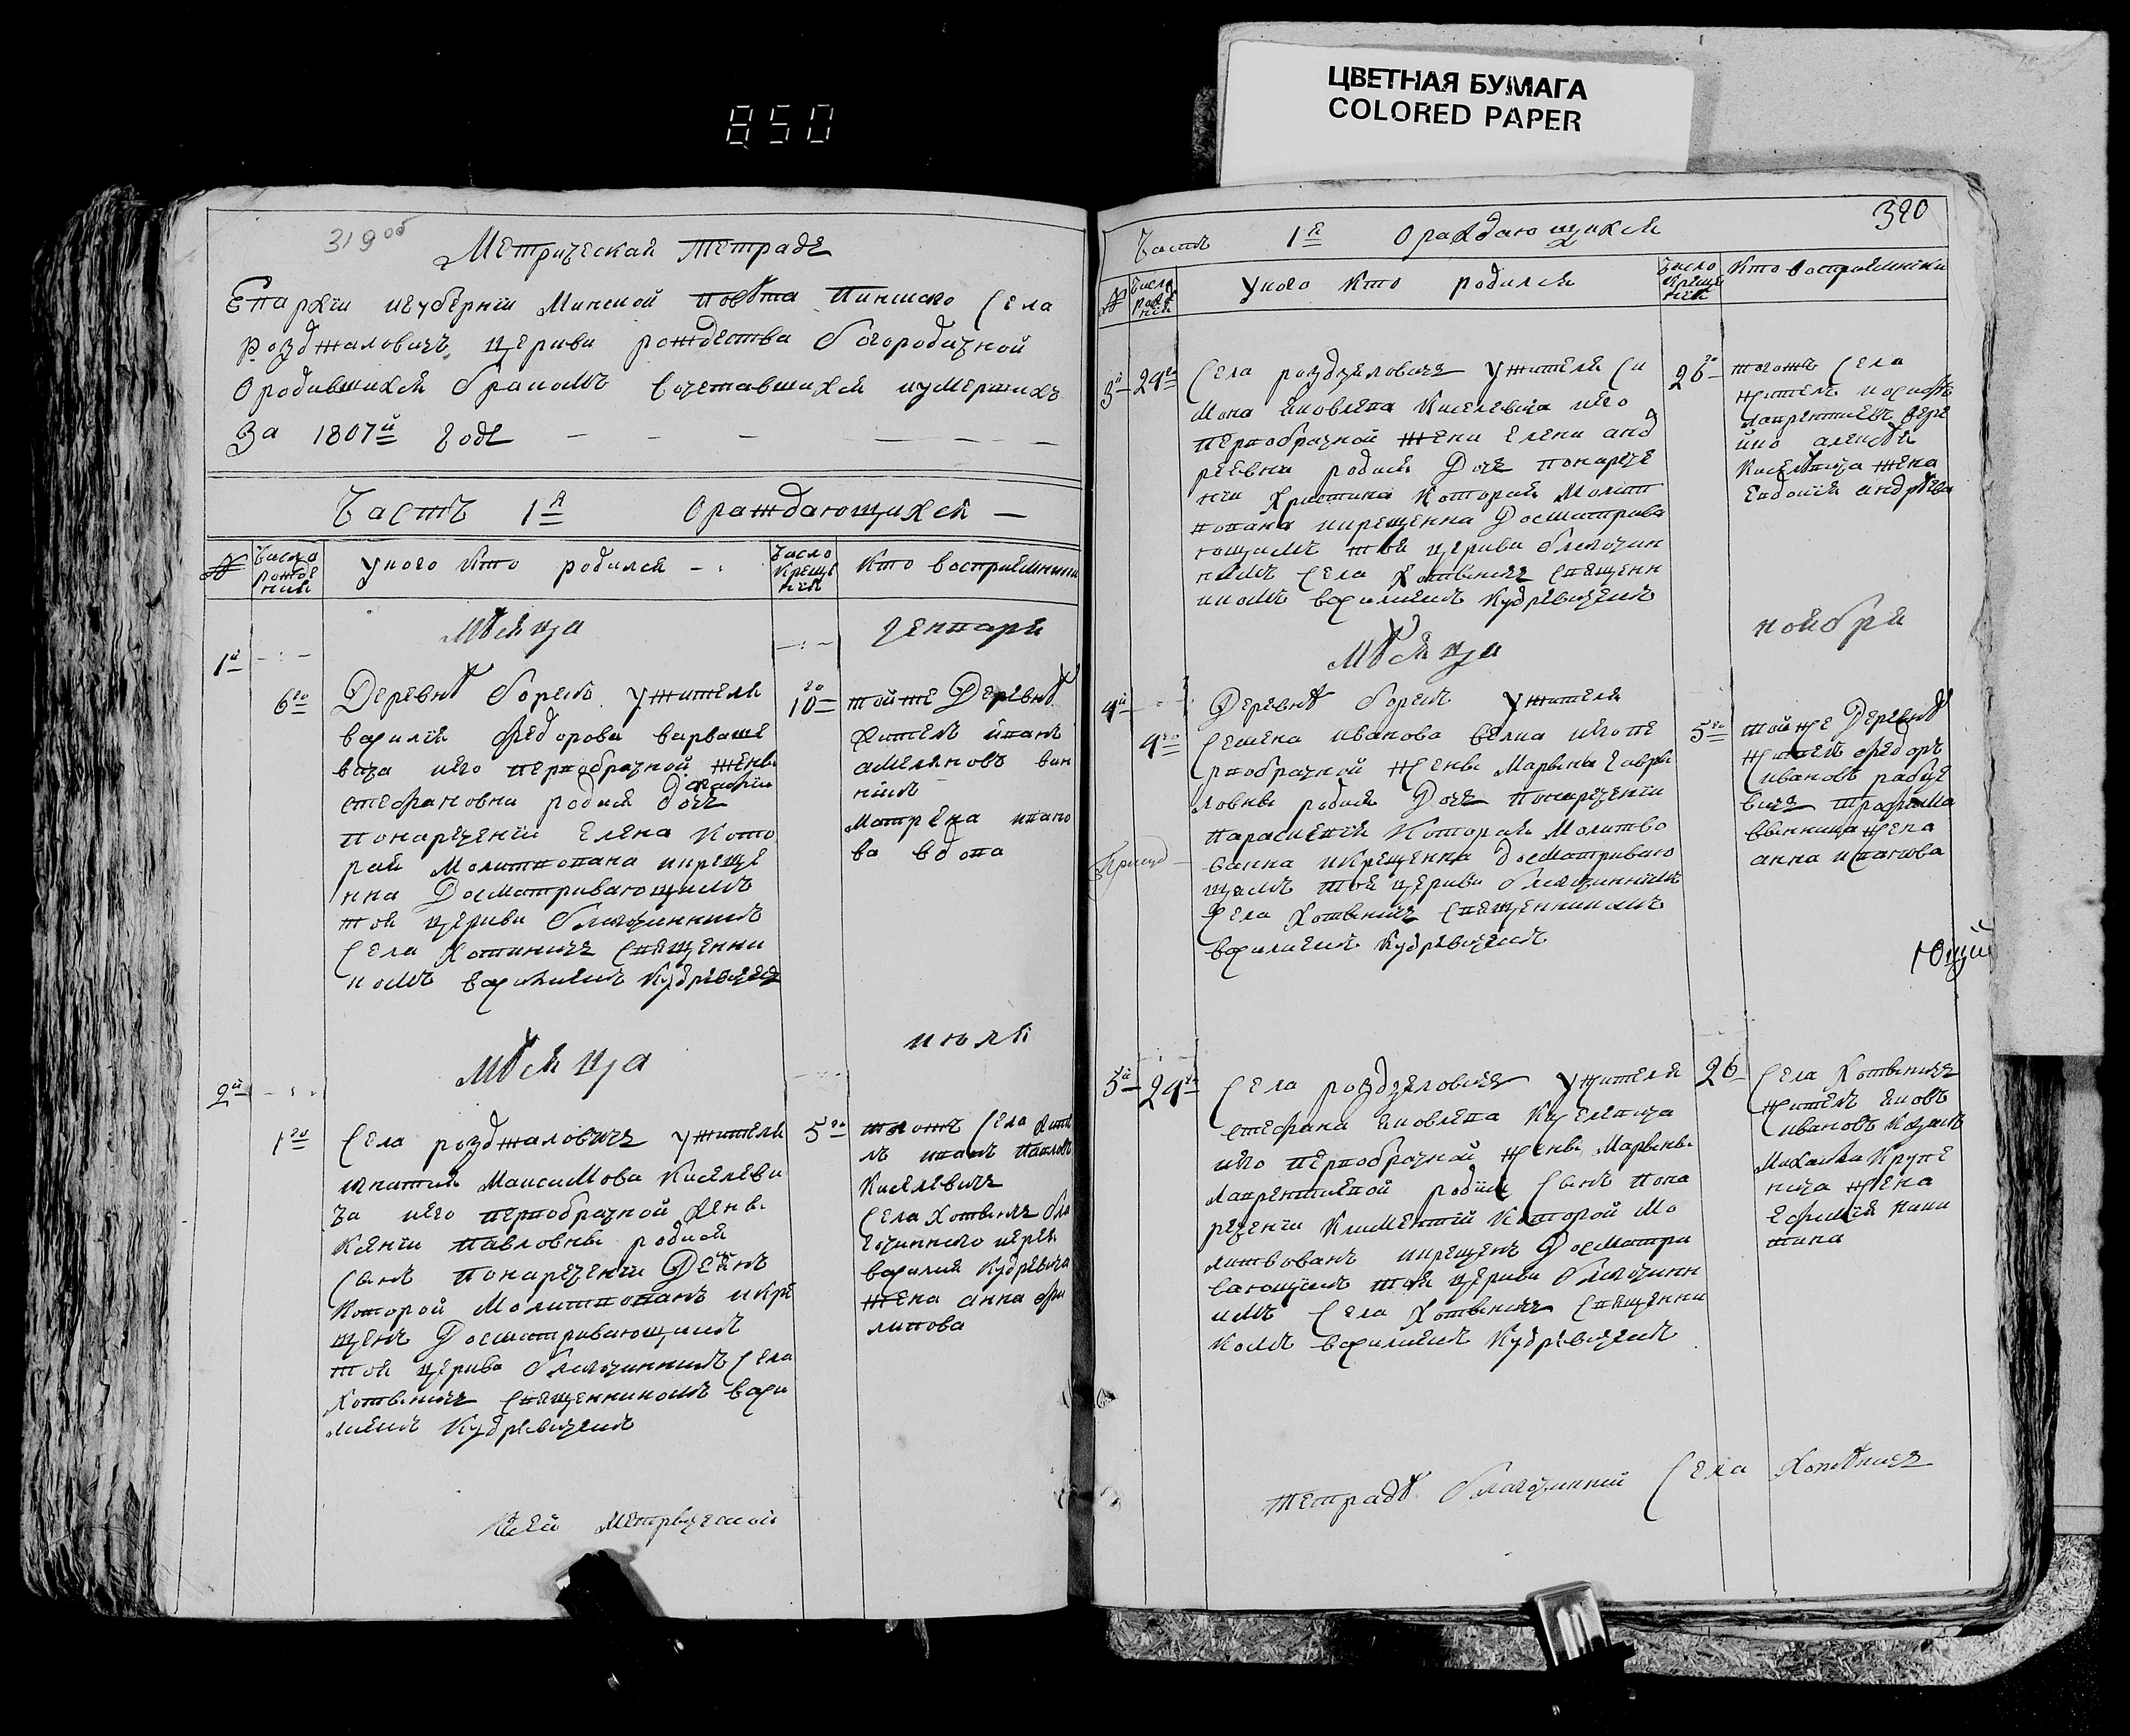 ЦВЕТНАЯ БУМАГА
COLORED PAPER
850
319об
Метрическая тетрадь
Епархіи игуберніи Минской повѣта Пинского Села
Розджаловичъ церкви рождества богородичной
Ородившихся бракомъ Сочетавшихся иумершихъ
За 1807й годъ
Часть 1я Ораждающихся
№
Число рожде ния
Укого Кто родился
Число Креще нія
Кто восприемники
Мѣсяца генваря
1й
6го
Деревнѣ борекъ ужителя
василія Федорова варваше
вича иего первобрачной жены
стефановны родися дочь
Понаречении Елена Кото
рая Молитвована икреще
нна Досматривающимъ
той церкви благочиннымъ
Села Хотиничъ Священни
комъ василиемъ Кудревичем
10го
тойже Деревнѣ
житель иванъ
амеляновъ
Матрена ивано
ва вдова
Мѣсяца июля
2й
1го
Села розджаловичъ ужителя
игнатия Максимова Киселеви
ча иего первобрачной жены
Ксении Павловны родися
Сынъ Понаречении
Которой Молитвованъ икре
щенъ Досматривающимъ
той церкви благочиннымъ Села
Хотыничъ Священникомъ васи
лиемъ Кудревичемъ
5го
тогожъ Села жите
ль иванъ Павловъ
Киселевичъ
Села Хотыничъ бла
гочинного иерея
василия Кудревича
жена анна фи
липова
Сей Метрической
320
Часть 1я Ораждающихся
№
Число рожде ния
Укого Кто родился
Число Креще нія
Кто восприемники
3й 24го
Села роздзяловичъ ужителя Си
мона яковлева Киселевича иего
первобрачной жени Елени анд
реевни родися Дочь понарече
нии Христина Которая Молит
вована икрещенна Досматрива
ющимъ той церкви благочин
нымъ Села Хотыничъ Священн
икомъ василиемъ Кудревичемъ
26го
тогожъ Села
житель
Лаврентиевъ
алексѣя
Киселевича жена
Евдокия андрѣева
Мѣсяца ноября
4й
4го
Деревнѣ борекъ ужителя
Семена иванова иегопе
рвобрачной жены Марьяны Гаври
ловны родися Дочь Понаречении
Параскевия Которая Молитво
ванна икрещенна досматриваю
щимъ той церкви благочиннымъ
Села Хотыничъ Священникомъ
василиемъ Кудревичемъ
5го
тойже Деревнѣ
житель федоръ
ивановъ
жена
анна иванова
ющий
5й 24го
Села роздзяловичъ ужителя
стефана яковлева Киселевича
иего первобрачной жены Марьяны
Лаврентиевой родися Сынъ Пона
речении Климентий Которой Мо
литвованъ икрещенъ Досматри
вающимъ той церкви благочинн
имъ Села Хотыничъ Священни
комъ василиемъ Кудревичемъ
26
Села Хотыничъ
житель яковъ
ивановъ
Михайла Крупе
нича жена
Ники
тина
тетрадѣ благочинний Села Хотѣничъ